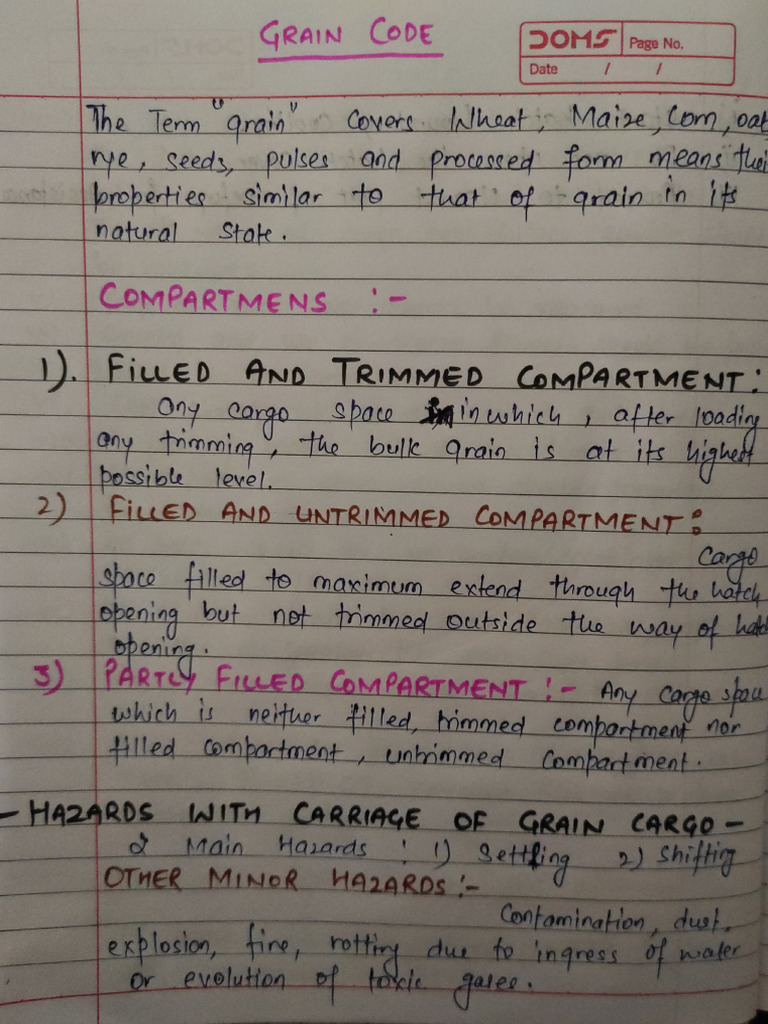 GRAIN CODE
DOMS Page No.
Date / /
The Term "grain" Covers Wheat, Maize, Corn, oat
rye, seeds, pulses and processed form means thei
properties similar to that of grain in its
natural State.
COMPARTMENS :-
1). FILLED AND TRIMMED COMPARTMENT:
any cargo space in which, after loading
any trimming, the bulk grain is at its highest
possible level.
2) FILLED AND UNTRIMMED COMPARTMENT:
Cargo
space filled to maximum extend through the hatch
opening but not trimmed outside the way of hatch
opening.
3) PARTLY FILLED COMPARTMENT :- Any cargo space
which is neither filled, trimmed compartment nor
filled compartment, untrimmed compartment.
- HAZARDS WITH CARRIAGE OF GRAIN CARGO -
2 Main Hazards : 1) Settling 2) Shifting
OTHER MINOR HAZARDS :-
Contamination, dust,
explosion, fire, rotting due to ingress of water
or evolution of toxic gases.